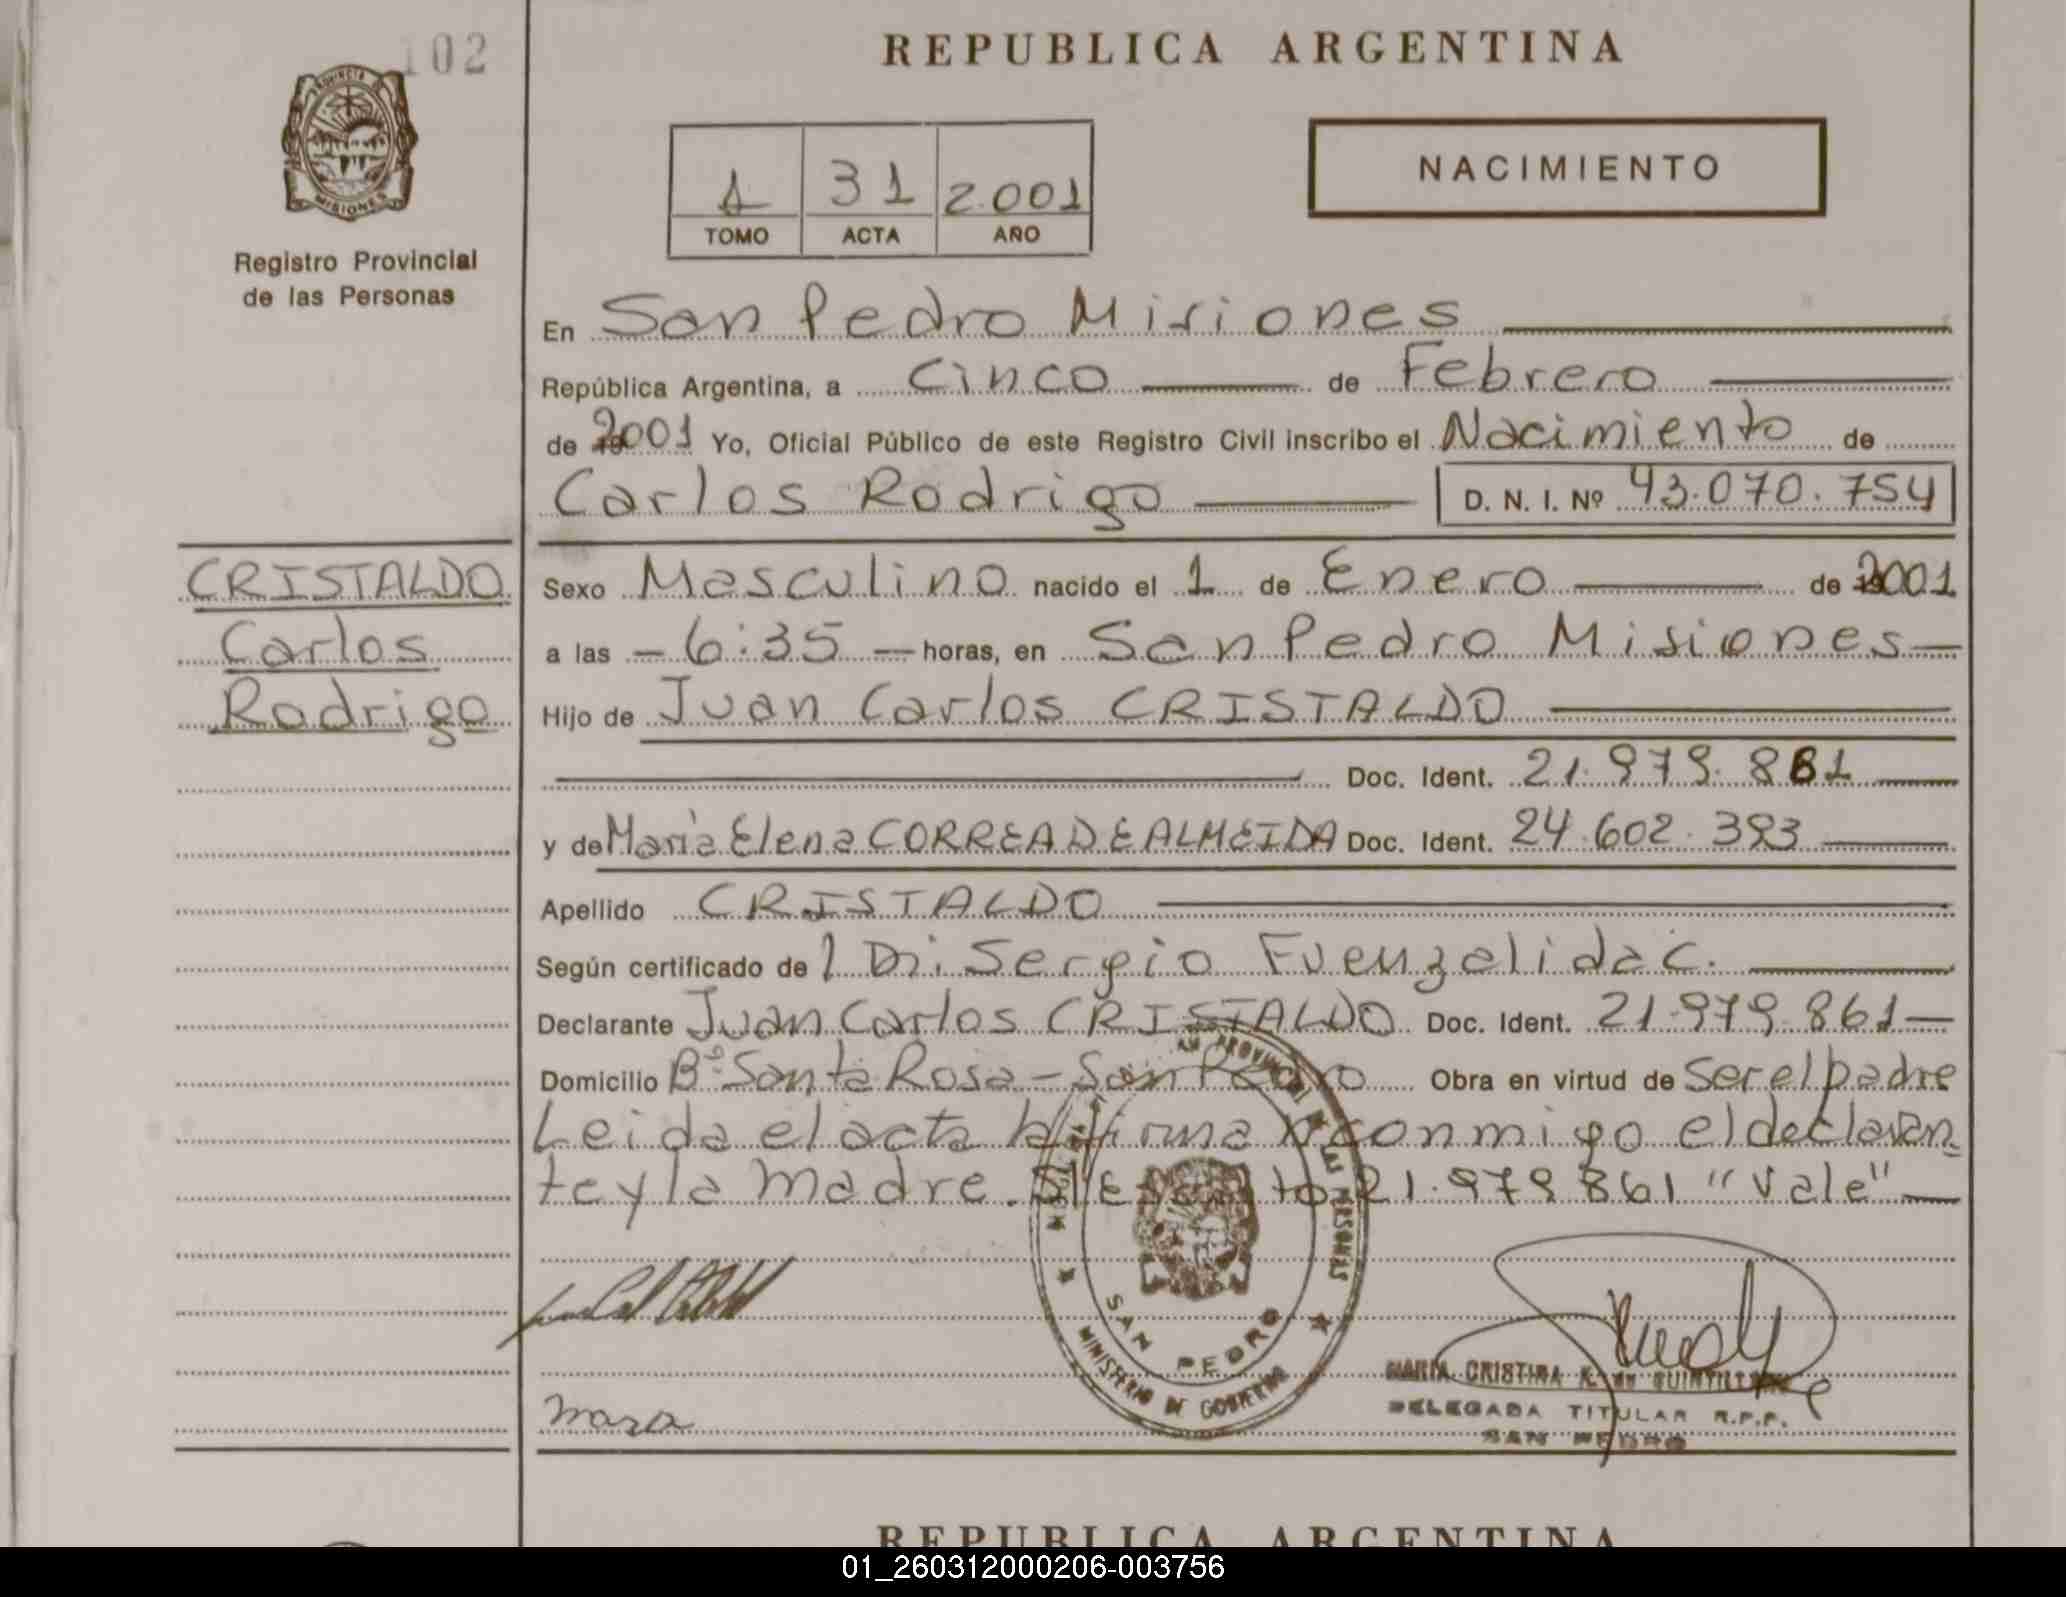 102
PROVINCIA DE
MISIONES
Registro Provincial
de las Personas
REPUBLICA ARGENTINA
1 31 2.001
TOMO ACTA AÑO
NACIMIENTO
En San Pedro Misiones
República Argentina, a Cinco de Febrero
de 2001 Yo, Oficial Público de este Registro Civil inscribo el Nacimiento de
Carlos Rodrigo D. N. I. Nº 43.070.754
CRISTALDO
Carlos
Rodrigo
Sexo Masculino nacido el 1 de Enero de 2001
a las - 6:35 - horas, en San Pedro Misiones-
Hijo de Juan Carlos CRISTALDO
Doc. Ident. 21.979.861
y de María Elena CORREA DE ALMEIDA Doc. Ident. 24.602.393
Apellido CRISTALDO
Según certificado de Sergio Fuenzalida C.
Declarante Juan Carlos CRISTALDO Doc. Ident. 21.979.861-
Domicilio Bº Santa Rosa - San Pedro Obra en virtud de ser el padre
Leida el acta la firma conmigo el declaran
te y la madre. 21.979.861 "Vale"
REGISTRO PROVINCIAL DE LAS PERSONAS
SAN PEDRO
MINISTERIO DE GOBIERNO
MARIA CRISTINA K. de
DELEGADA TITULAR R.P.P.
SAN PEDRO
REPUBLICA ARGENTINA
01_260312000206-003756